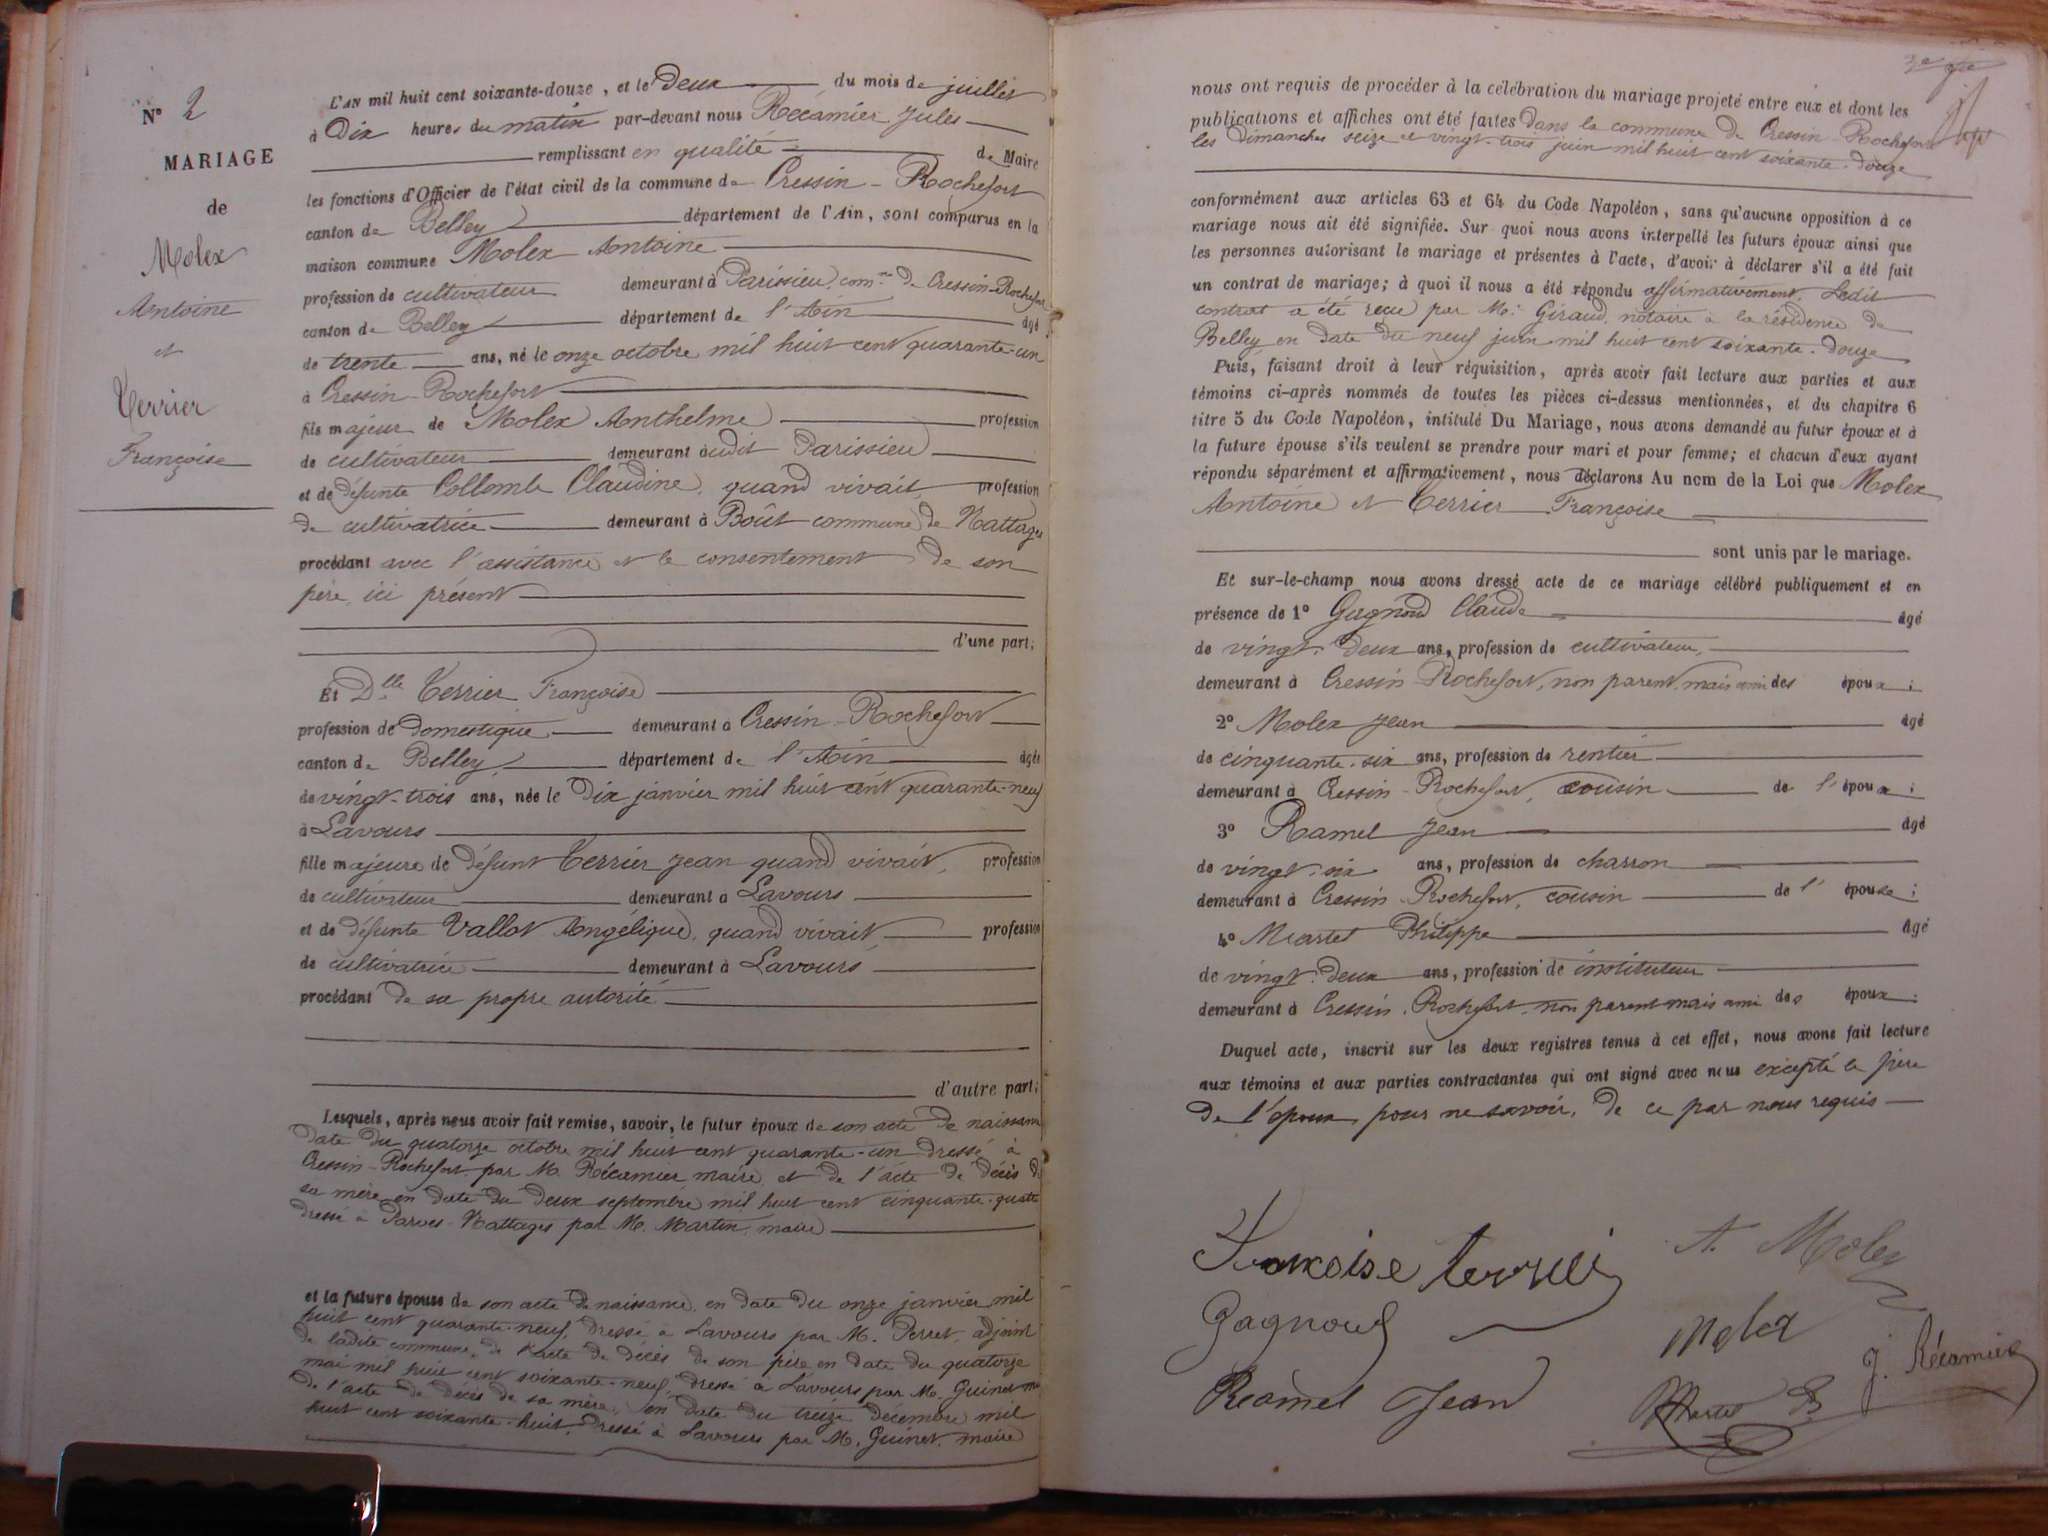 N° 2
MARIAGE
de
Molex
Antoine
et
Terrier
Françoise
L'AN mil huit cent soixante-douze, et le Deux du mois de juillet
à Dix heures du matin par-devant nous Récamier Jules
remplissant en qualité de Maire
les fonctions d'Officier de l'état civil de la commune de Cressin-Rochefort
canton de Belley département de l'Ain, sont comparus en la
maison commune Molex Antoine
profession de cultivateur demeurant à Parissieu, com.ne de Cressin-Rochefort
canton de Belley département de l'Ain âgé
de trente ans, né le onze octobre mil huit cent quarante-un
à Cressin-Rochefort
fils majeur de Molex Anthelme profession
de cultivateur demeurant àudit Parissieu
et de défunte Collomb Claudine, quand vivait, profession
de cultivatrice demeurant à Boût commune de Nattages
procédant avec l'assistance et le consentement de son
père, ici présent
d'une part;
Et Dlle Terrier Françoise
profession de domestique demeurant à Cressin-Rochefort
canton de Belley, département de l'Ain âgée
de vingt-trois ans, née le Dix janvier mil huit cent quarante-neuf
à Lavours
fille majeure de défunt Terrier Jean quand vivait, profession
de cultivateur demeurant à Lavours
et de défunte Vallot Angélique, quand vivait, profession
de cultivatrice demeurant à Lavours
procédant de sa propre autorité
d'autre part;
Lesquels, après nous avoir fait remise, savoir, le futur époux de son acte de naissance
date du quatorze octobre mil huit cent quarante-un dressé à
Cressin-Rochefort par M. Récamier maire, et de l'acte de décès de
sa mère en date du deux septembre mil huit cent cinquante-quatre
dressé à Parves-Nattages par M. Martin, maire
et la future épouse de son acte de naissance, en date du onze janvier mil
huit cent quarante-neuf, dressé à Lavours par M. Perret, adjoint
de ladite commune, de l'acte de décès de son père en date du quatorze
mai mil huit cent soixante-neuf, dressé à Lavours par M. Guinet
de l'acte de décès de sa mère, en date du treize décembre mil
huit cent soixante-huit, dressé à Lavours par M. Guinet, maire
nous ont requis de procéder à la célébration du mariage projeté entre eux et dont les
publications et affiches ont été faites dans la commune de Cressin-Rochefort
les dimanches seize et vingt-trois juin mil huit cent soixante-douze
conformément aux articles 63 et 64 du Code Napoléon, sans qu'aucune opposition à ce
mariage nous ait été signifiée. Sur quoi nous avons interpellé les futurs époux ainsi que
les personnes autorisant le mariage et présentes à l'acte, d'avoir à déclarer s'il a été fait
un contrat de mariage; à quoi il nous a été répondu affirmativement. Ledit
contrat a été reçu par Me Giraud, notaire à la résidence de
Belley en date du neuf juin mil huit cent soixante-douze
Puis, faisant droit à leur réquisition, après avoir fait lecture aux parties et aux
témoins ci-après nommés de toutes les pièces ci-dessus mentionnées, et du chapitre 6
titre 5 du Code Napoléon, intitulé Du Mariage, nous avons demandé au futur époux et à
la future épouse s'ils veulent se prendre pour mari et pour femme; et chacun d'eux ayant
répondu séparément et affirmativement, nous déclarons Au nom de la Loi que Molex
Antoine et Terrier Françoise
sont unis par le mariage.
Et sur-le-champ nous avons dressé acte de ce mariage célébré publiquement et en
présence de 1° Gagnoud Claude âgé
de vingt-deux ans, profession de cultivateur,
demeurant à Cressin-Rochefort, non parent, mais ami des époux;
2° Molex Jean âgé
de cinquante-six ans, profession de rentier
demeurant à Cressin-Rochefort, cousin de l'époux;
3° Ramel Jean âgé
de vingt-six ans, profession de charron
demeurant à Cressin-Rochefort, cousin de l'épouse;
4° Martet Philippe âgé
de vingt-deux ans, profession de instituteur
demeurant à Cressin-Rochefort, non parent mais ami des époux.
Duquel acte, inscrit sur les deux registres tenus à cet effet, nous avons fait lecture
aux témoins et aux parties contractantes qui ont signé avec nous excepté le père
de l'époux pour ne savoir, de ce par nous requis
Francoise terrier
A. Molex
Gagnoud
Molex
J. Récamier
Ramel Jean
Martet